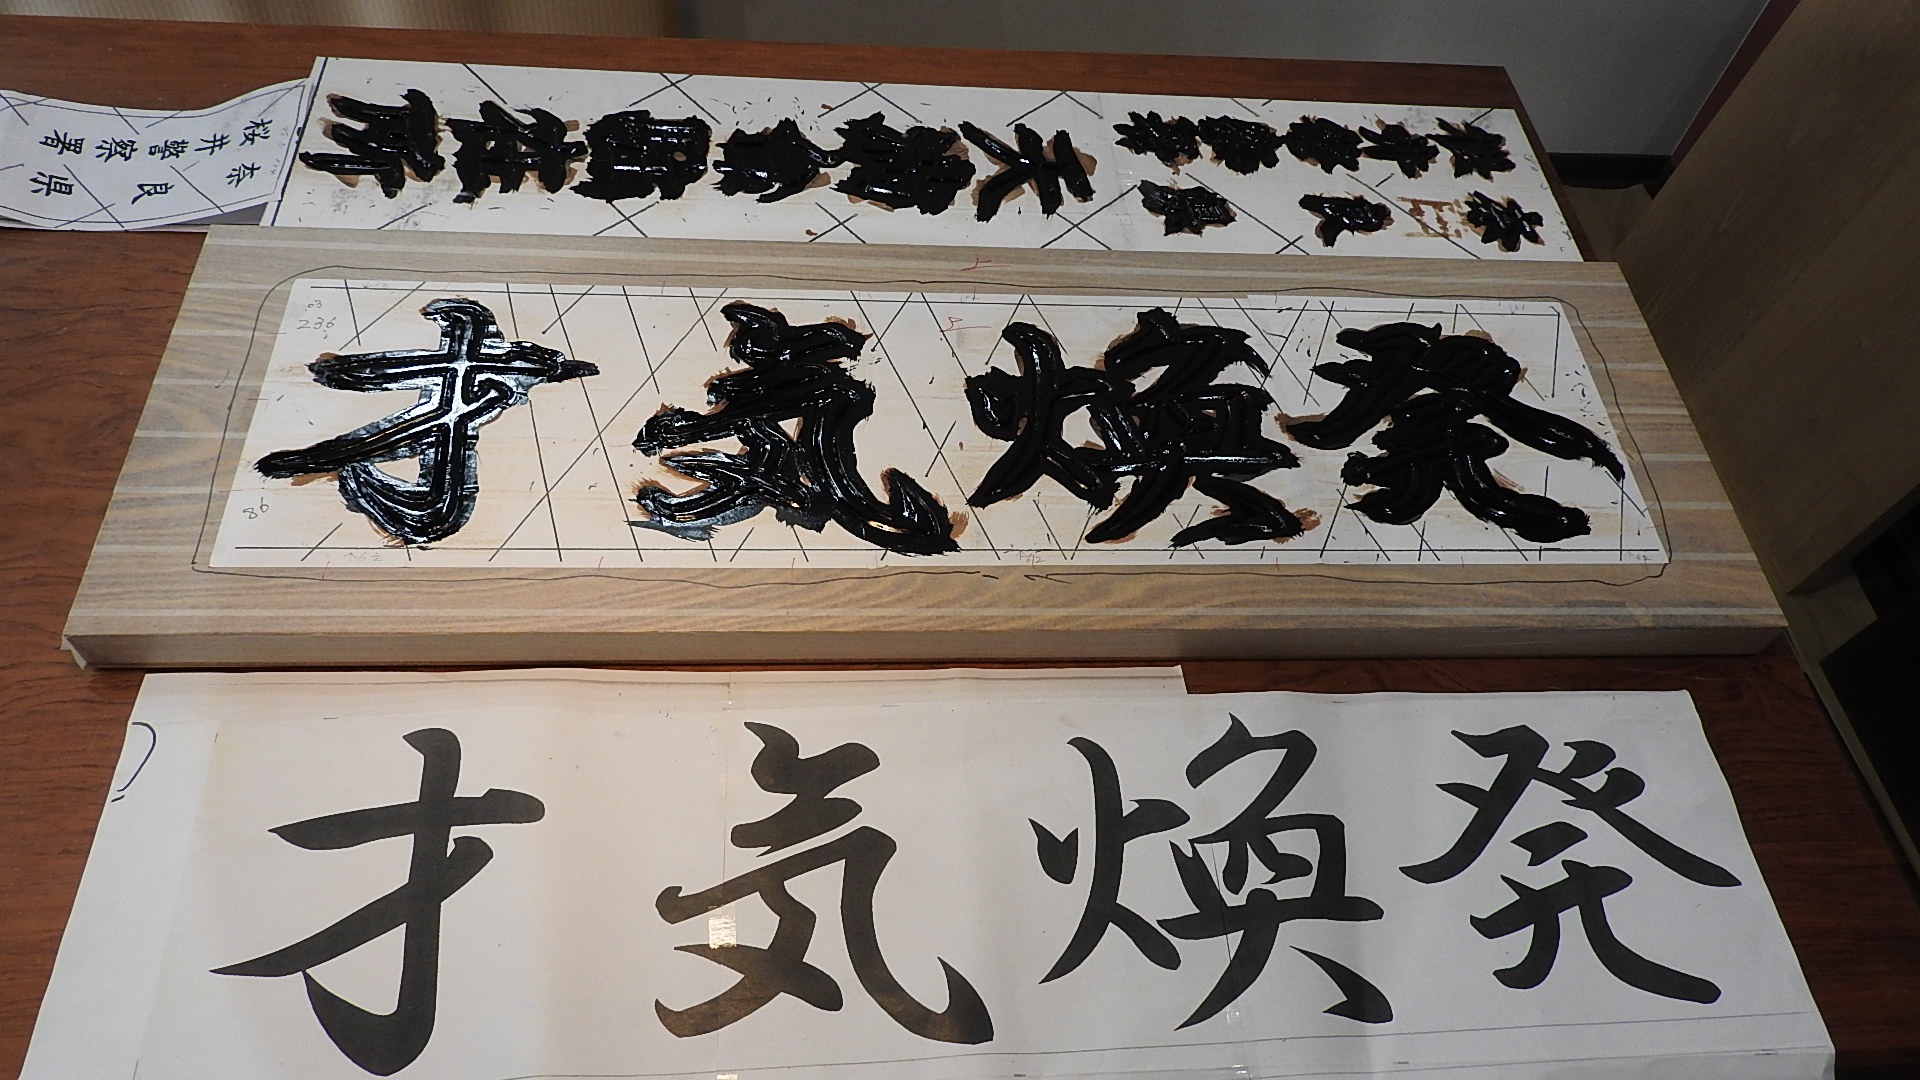 奈良県
桜井警察署
奈良県
桜井警察署
天 駐在所
236
86
才気煥発
才気煥発